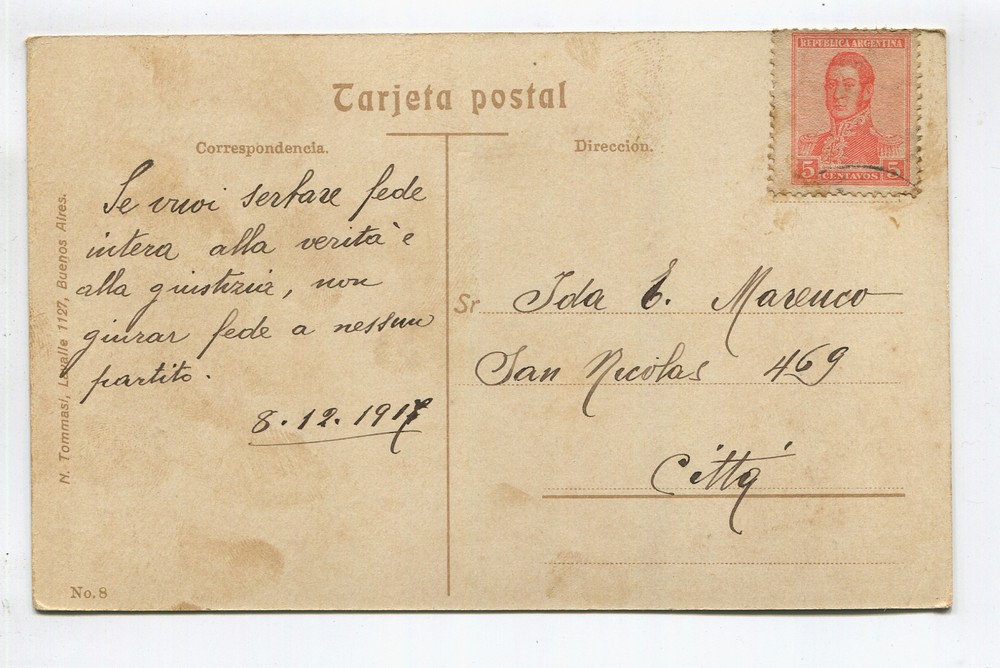 Tarjeta postal
REPUBLICA ARGENTINA
5 CENTAVOS 5
Correspondencia.
Dirección.
Se vuoi serbare fede
intera alla verità e
alla giustizia, non
giurar fede a nessun
partito.
8.12.1917
Sr Ida E. Marenco
San Nicolas 469
Città
N. Tommasi, Lavalle 1127, Buenos Aires.
No. 8